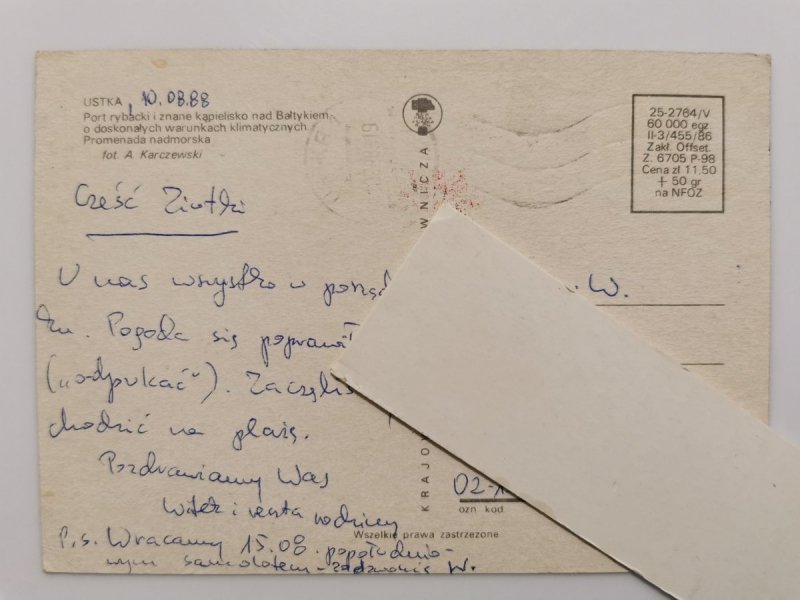 USTKA, 10.08.88
Port rybacki i znane kąpielisko nad Bałtykiem
o doskonałych warunkach klimatycznych.
Promenada nadmorska
fot. A. Karczewski
25-2764/V
60 000 egz.
II-3/455/86
Zakł. Offset.
Z. 6705 P-98
Cena zł 11,50
+ 50 gr
na NFOZ
Cześć Ziutki
U nas wszystko w porząd
ku. Pogoda się poprawił
("odpukać"). Zaczęli
chodzić na plażę.
Pozdrawiamy Was
i reszta rodziny
P.s. Wracamy 15.08. popołudnio-
wym samolotem - zadzwonię W.
W.
KRAJOW
WNICZA
02-
ozn kod
Wszelkie prawa zastrzeżone